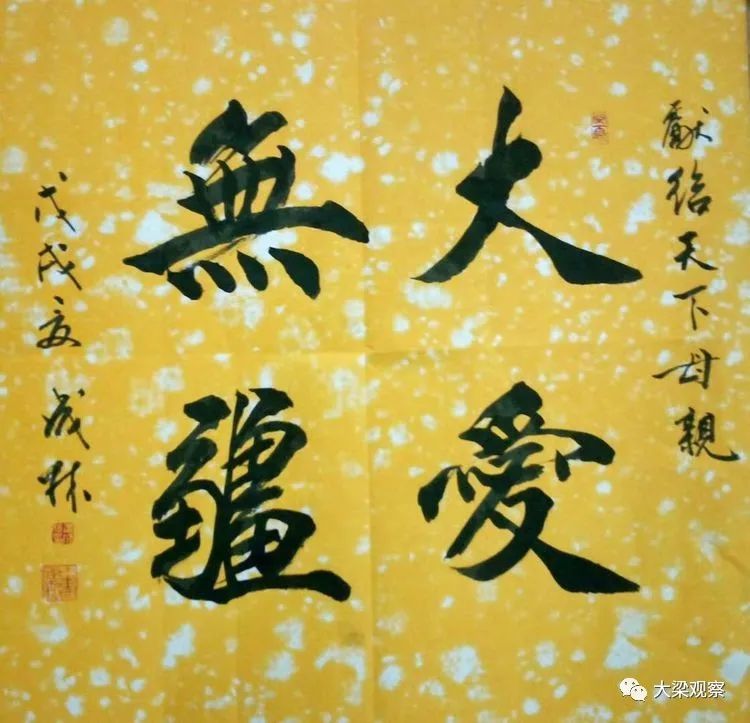 獻給天下母親
大愛
無疆
戊戌夏 成林
大梁观察